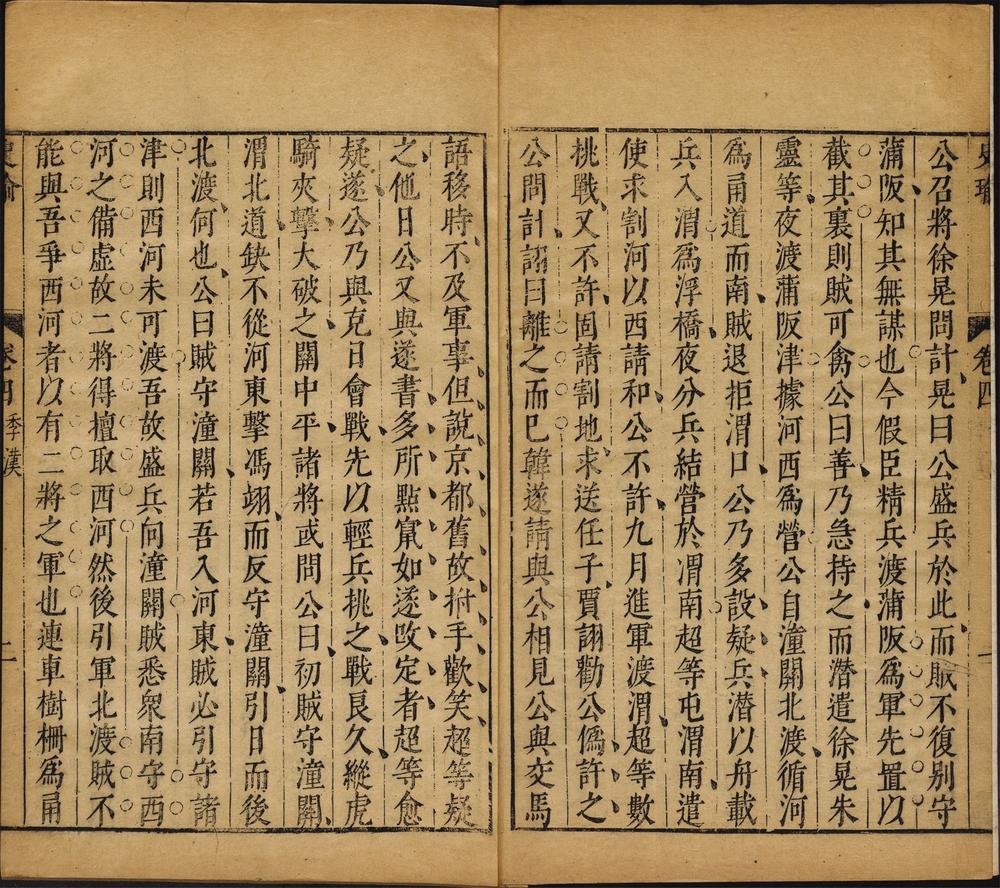 史
卷四
一
公召將徐晃問計晃曰公盛兵於此而賊不復別守
蒲阪知其無謀也今假臣精兵渡蒲阪爲軍先置以
截其裏則賊可禽公曰善乃急持之而潛遣徐晃朱
靈等夜渡蒲阪津據河西爲營公自潼關北渡循河
爲甬道而南賊退拒渭口公乃多設疑兵潛以舟載
兵入渭爲浮橋夜分兵結營於渭南超等屯渭南遣
使求割河以西請和公不許九月進軍渡渭超等數
桃戰又不許固請割地求送任子賈詡勸公僞許之
公問計詡曰離之而已韓遂請與公相見公與交馬
語移時不及軍事但說京都舊故拊手歡笑超等疑
之他日公又與遂書多所點竄如遂攺定者超等愈
疑遂公乃與克日會戰先以輕兵桃之戰良久縱虎
騎夾擊大破之關中平諸將或問公曰初賊守潼關
渭北道缺不從河東擊馮翊而反守潼關引日而後
北渡何也公曰賊守潼關若吾入河東賊必引守諸
津則西河未可渡吾故盛兵向潼關賊悉衆南守西
河之備虛故二將得擅取西河然後引軍北渡賊不
能與吾爭西河者以有二將之軍也連車樹柵爲甬
卷四
季漢
二